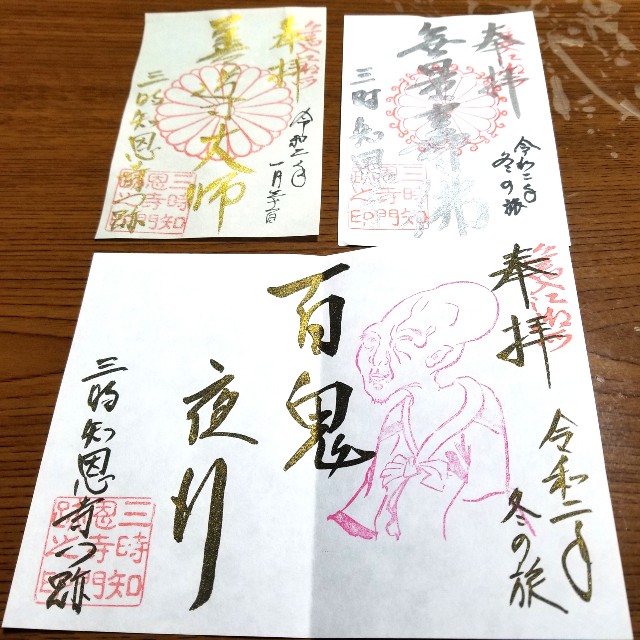 奉拝
令和二年
善導大師
三時知恩寺门跡
三時知
恩寺門
跡之印
奉拝
令和二年
冬の旅
無量寿佛
三時知恩
三時知
恩寺門
跡之印
奉拝
令和二年
冬の旅
百鬼
夜行
三時知恩寺门跡
三時知
恩寺門
跡之印